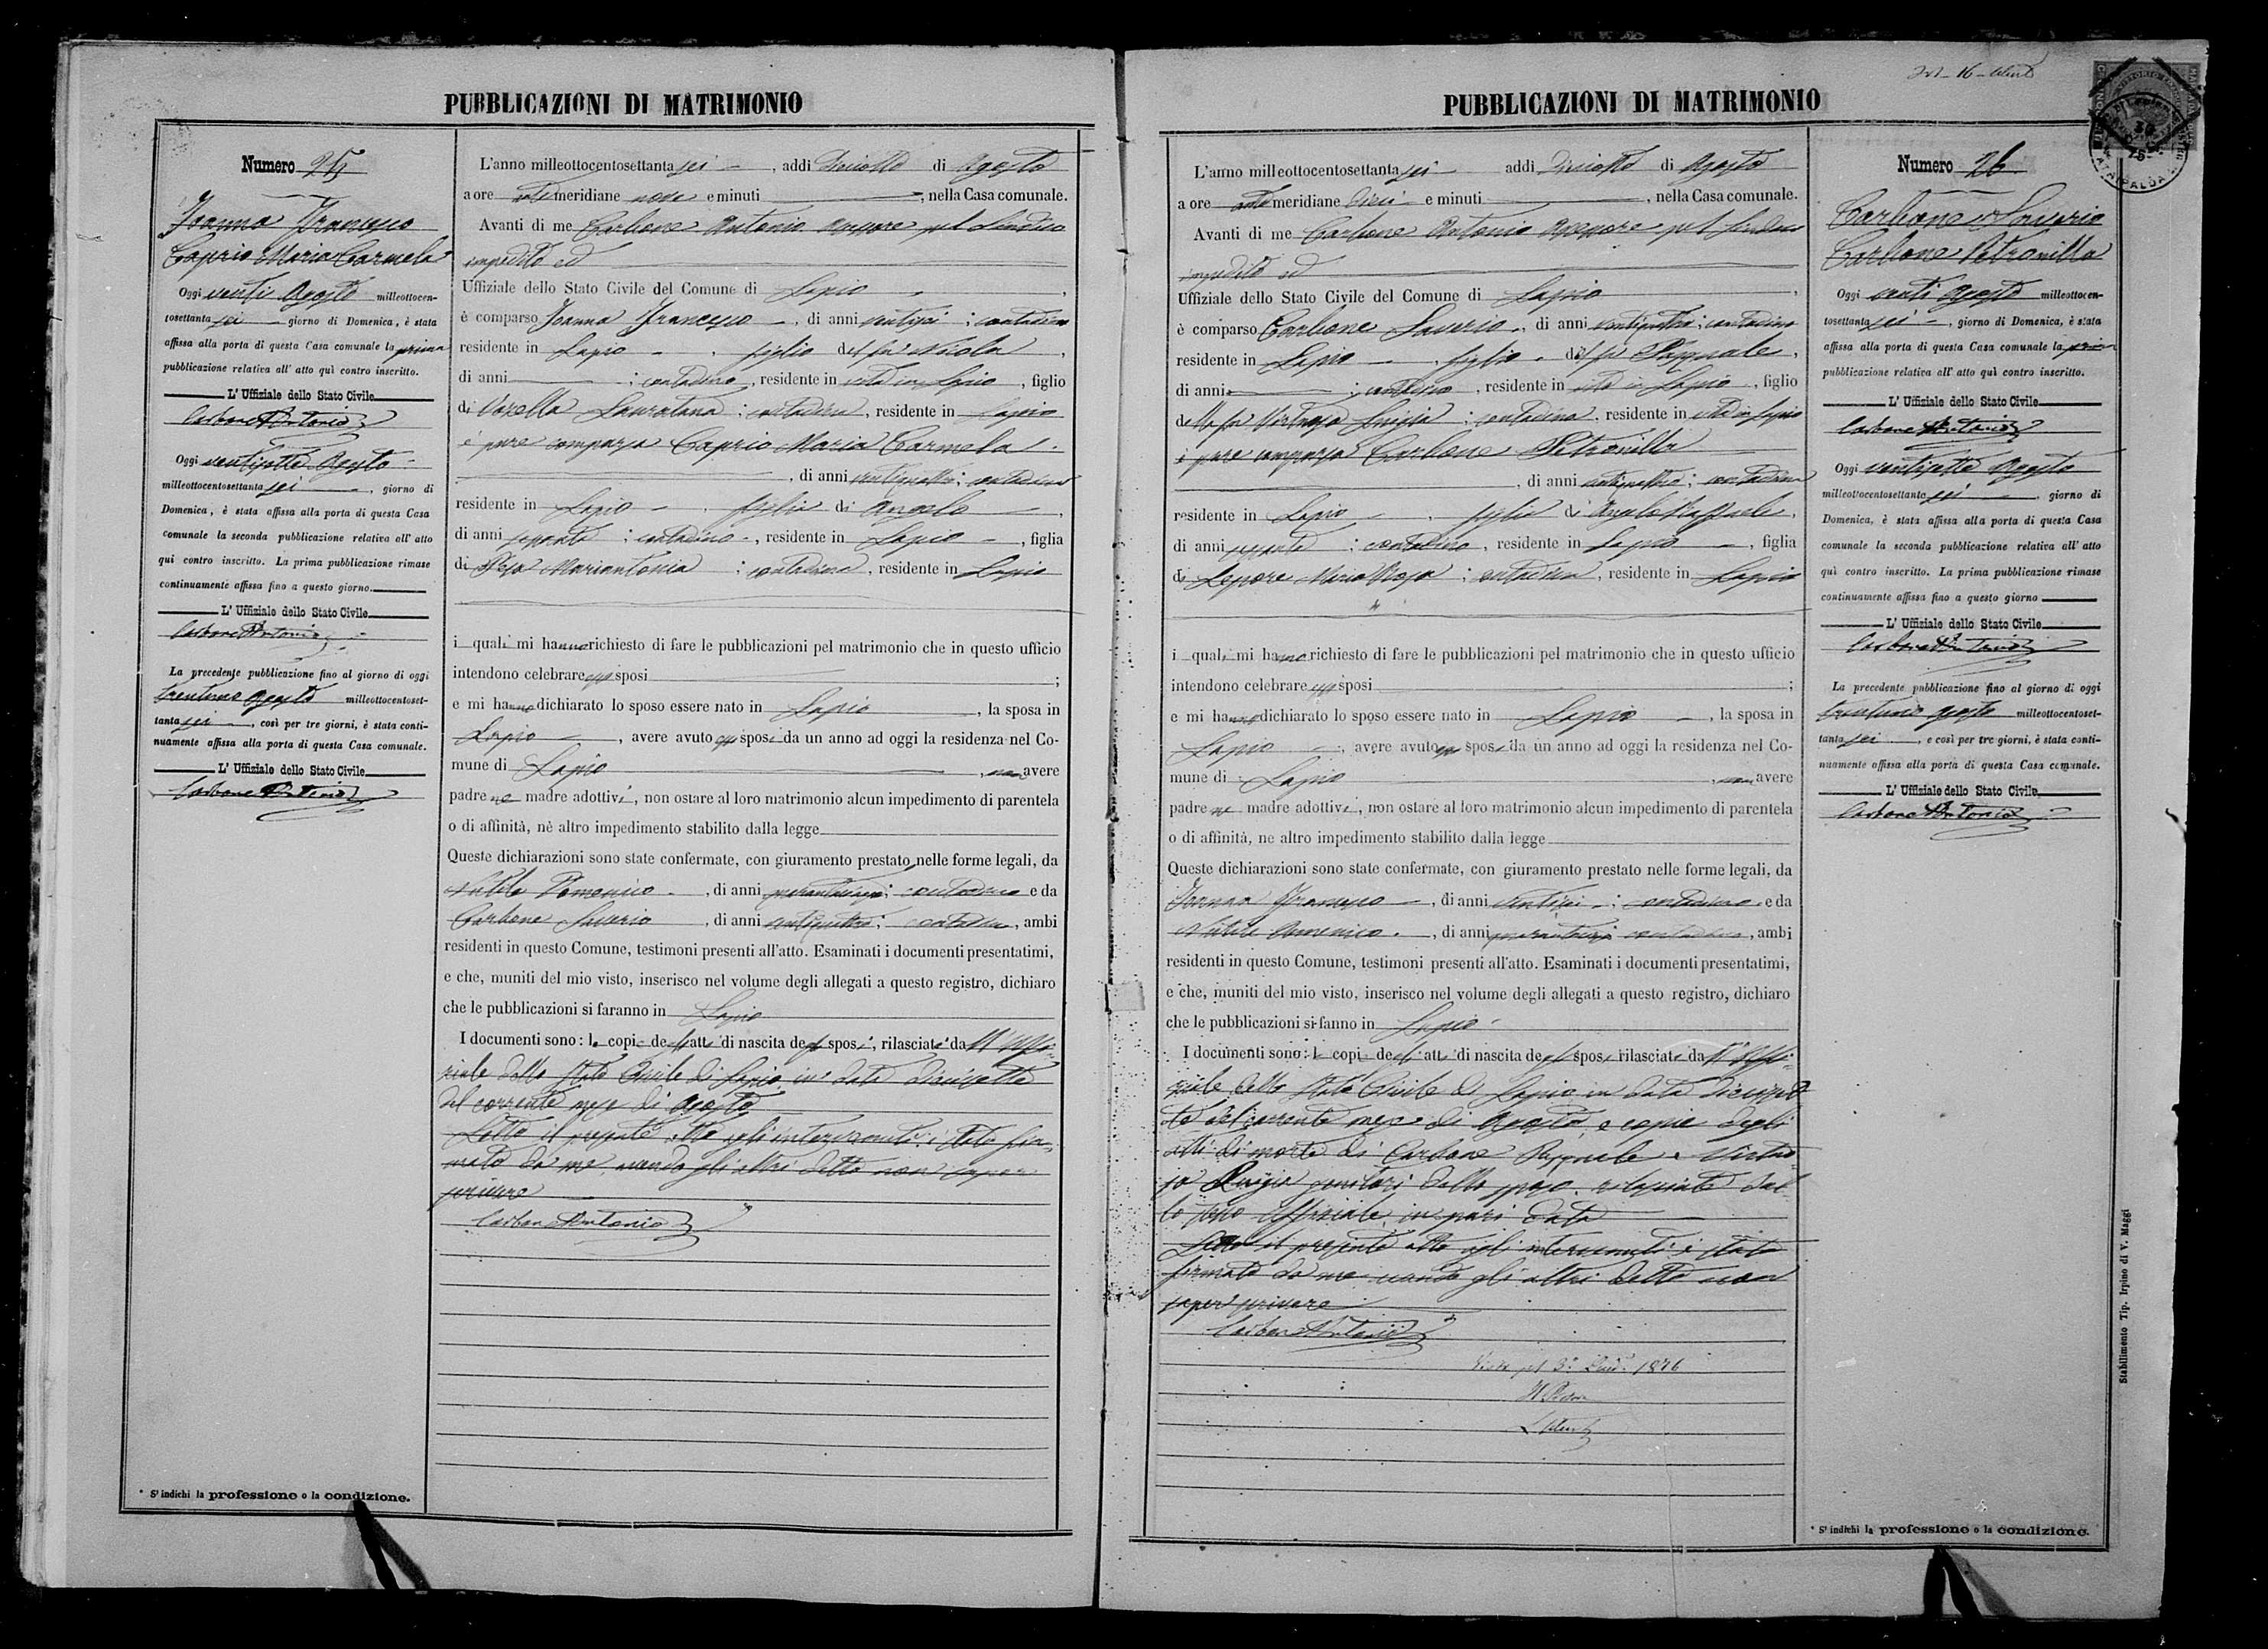 PUBBLICAZIONI DI MATRIMONIO
Numero 25
Joanna Francesco
Caprio Maria Carmela
Oggi venti Agosto milleottocen-
tosettanta sei giorno di Domenica, è stata
affissa alla porta di questa Casa comunale la prima
pubblicazione relativa all' atto quì contro inscritto.
L' Uffiziale dello Stato Civile
Carbone Antonio
Oggi ventisette Agosto
milleottocentosettanta sei, giorno di
Domenica, è stata affissa alla porta di questa Casa
comunale la seconda pubblicazione relativa all' atto
qui contro inscritto. La prima pubblicazione rimase
continuamente affissa fino a questo giorno.
L' Uffiziale dello Stato Civile
Carbone Antonio
La precedente pubblicazione fino al giorno di oggi
trentuno Agosto milleottocentoset-
tanta sei, così per tre giorni, è stata conti-
nuamente affissa alla porta di questa Casa comunale.
L' Uffiziale dello Stato Civile
Carbone Antonio
* S' indichi la professione o la condizione.
L'anno milleottocentosettanta sei, addì Diciotto di Agosto
a ore anti meridiane nove e minuti, nella Casa comunale.
Avanti di me Carbone Antonio Assessore pel Sindaco
impedito ed
Uffiziale dello Stato Civile del Comune di Lapio,
è comparso Joanna Francesco, di anni ventisei; contadino
residente in Lapio, figlio del fu Nicola,
di anni; contadino, residente in vita in Lapio, figlio
di Vozella; contadina, residente in Lapio
è pure comparsa Caprio Maria Carmela
, di anni ventiquattro; contadina
residente in Lapio, figlia di Angelo,
di anni sessanta; contadino, residente in Lapio, figlia
di Mariantonia; contadina, residente in Lapio
i quali mi hanno richiesto di fare le pubblicazioni pel matrimonio che in questo ufficio
intendono celebrare essi sposi;
e mi hanno dichiarato lo sposo essere nato in Lapio, la sposa in
Lapio, avere avuto essi sposi da un anno ad oggi la residenza nel Co-
mune di Lapio, non avere
padre ne madre adottivi, non ostare al loro matrimonio alcun impedimento di parentela
o di affinità, nè altro impedimento stabilito dalla legge
Queste dichiarazioni sono state confermate, con giuramento prestato nelle forme legali, da
Nutile Domenico, di anni quarantasei; contadino e da
Carbone Saverio, di anni ventiquattro; contadino, ambi
residenti in questo Comune, testimoni presenti all'atto. Esaminati i documenti presentatimi,
e che, muniti del mio visto, inserisco nel volume degli allegati a questo registro, dichiaro
che le pubblicazioni si faranno in Lapio
I documenti sono: le copie degli atti di nascita degli sposi, rilasciate da ll' Uffi-
ziale dello Stato Civile di Lapio in data diciassette
del corrente mese di Agosto
Letto il presente atto agli intervenuti è stato fir-
mato da me avendo gli altri detto non saper
scrivere
Carbone Antonio
PUBBLICAZIONI DI MATRIMONIO
L'anno milleottocentosettanta sei addì Diciotto di Agosto
a ore anti meridiane dieci e minuti, nella Casa comunale.
Avanti di me Carbone Antonio Assessore pel Sindaco
impedito ed
Uffiziale dello Stato Civile del Comune di Lapio,
è comparso Carbone Saverio, di anni ventiquattro; contadino
residente in Lapio, figlio del fu Pasquale,
di anni; contadino, residente in vita in Lapio, figlio
della fu Luigia; contadina, residente in vita in Lapio
è pure comparsa Carbone Petronilla
, di anni ventiquattro; contadina
residente in Lapio, figlia di Angelo Raffaele,
di anni sessanta; contadino, residente in Lapio, figlia
di Lepore Maria Rosa; contadina, residente in Lapio
i quali mi hanno richiesto di fare le pubblicazioni pel matrimonio che in questo ufficio
intendono celebrare essi sposi;
e mi hanno dichiarato lo sposo essere nato in Lapio, la sposa in
Lapio, avere avuto essi sposi da un anno ad oggi la residenza nel Co-
mune di Lapio, non avere
padre ne madre adottivi, non ostare al loro matrimonio alcun impedimento di parentela
o di affinità, ne altro impedimento stabilito dalla legge
Queste dichiarazioni sono state confermate, con giuramento prestato nelle forme legali, da
Joanna Francesco, di anni ventisei; contadino e da
Nutile Domenico, di anni quarantasei contadino, ambi
residenti in questo Comune, testimoni presenti all'atto. Esaminati i documenti presentatimi,
e che, muniti del mio visto, inserisco nel volume degli allegati a questo registro, dichiaro
che le pubblicazioni si fanno in Lapio
I documenti sono: le copie degli atti di nascita degli sposi rilasciate da ll' Uffi-
ziale dello Stato Civile di Lapio in data diciasset-
te del corrente mese di Agosto, e copie degli
atti di morte di Carbone Pasquale e
Luigia genitori dello sposo rilasciate dal-
lo stesso Uffiziale in pari data
Letto il presente atto agli intervenuti è stato
firmato da me avendo gli altri detto non
saper scrivere
Carbone Antonio
1876
Numero 26
Carbone Saverio
Carbone Petronilla
Oggi venti Agosto milleottocen-
tosettanta sei, giorno di Domenica, è stata
affissa alla porta di questa Casa comunale la prima
pubblicazione relativa all' atto quì contro inscritto.
L' Uffiziale dello Stato Civile
Carbone Antonio
Oggi ventisette Agosto
milleottocentosettanta sei, giorno di
Domenica, è stata affissa alla porta di questa Casa
comunale la seconda pubblicazione relativa all' atto
quì contro inscritto. La prima pubblicazione rimase
continuamente affissa fino a questo giorno
L' Uffiziale dello Stato Civile
Carbone Antonio
La precedente pubblicazione fino al giorno di oggi
trentuno Agosto milleottocentoset-
tanta sei, e così per tre giorni, è stata conti-
nuamente affissa alla porta di questa Casa comunale.
L' Uffiziale dello Stato Civile
Carbone Antonio
* S' indichi la professione o la condizione.
Stabilimento Tip. Irpino di V. Maggi